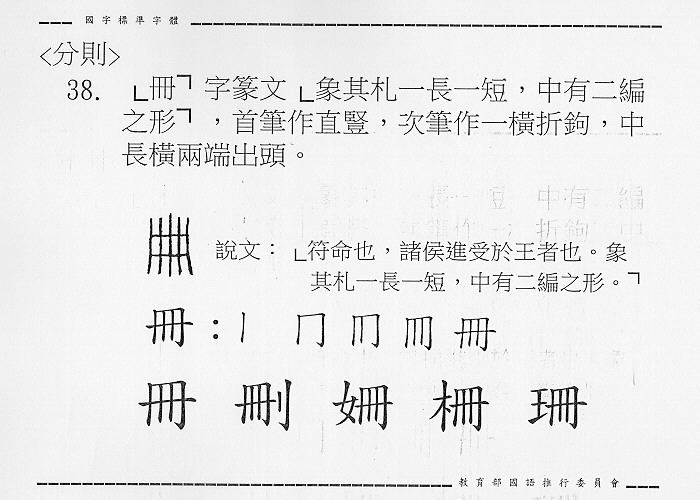 國字標準字體
<分則>
38. 「冊」字篆文「象其札一長一短，中有二編
之形」，首筆作直豎，次筆作一橫折鉤，中
長橫兩端出頭。
說文：「符命也，諸侯進受於王者也。象
其札一長一短，中有二編之形。」
冊：丨 冂 冊
冊 刪 姍 柵 珊
教育部國語推行委員會